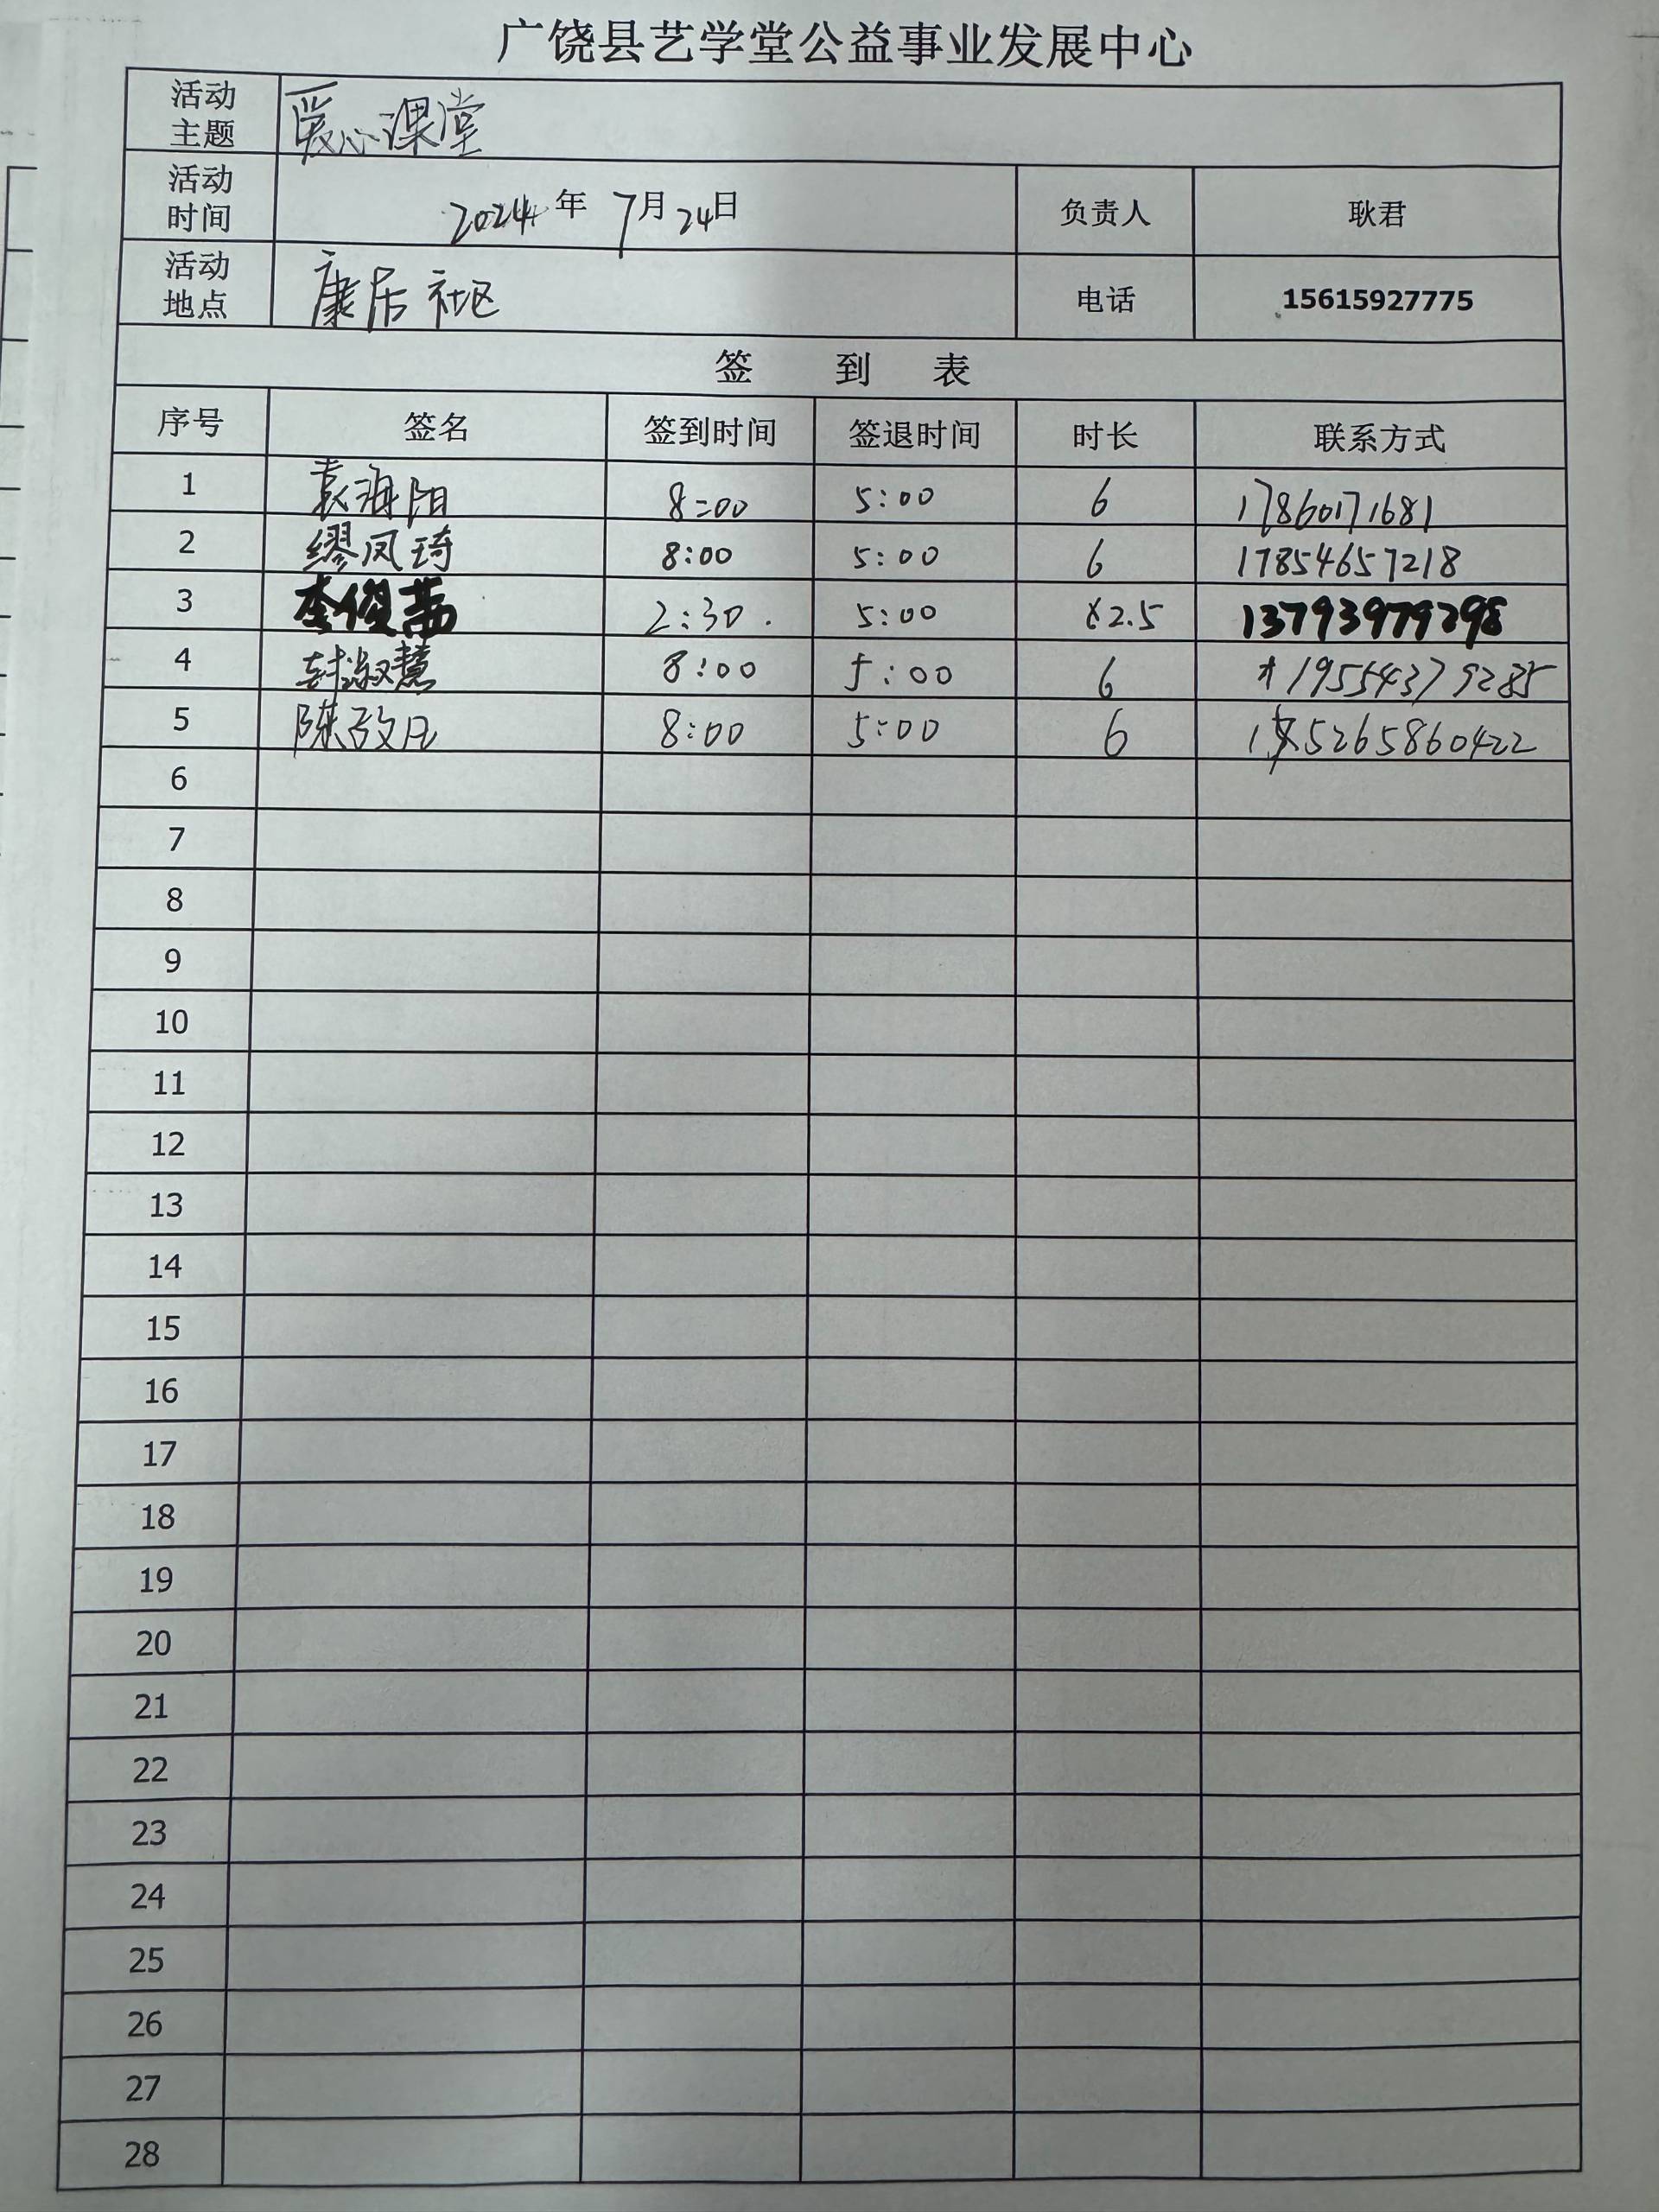 广饶县艺学堂公益事业发展中心
活动主题 爱心课堂
活动时间 2024年 7月24日 负责人 耿君
活动地点 康居社区 电话 15615927775
签到表
序号 签名 签到时间 签退时间 时长 联系方式
1 袁海阳 8:00 5:00 6 17860171681
2 缪凤琦 8:00 5:00 6 17854657218
3 李俊茹 2:30. 5:00 2.5 13793979298
4 淑慧 8:00 5:00 6 19554379285
5 陈 凡 8:00 5:00 6 15265860422
6
7
8
9
10
11
12
13
14
15
16
17
18
19
20
21
22
23
24
25
26
27
28